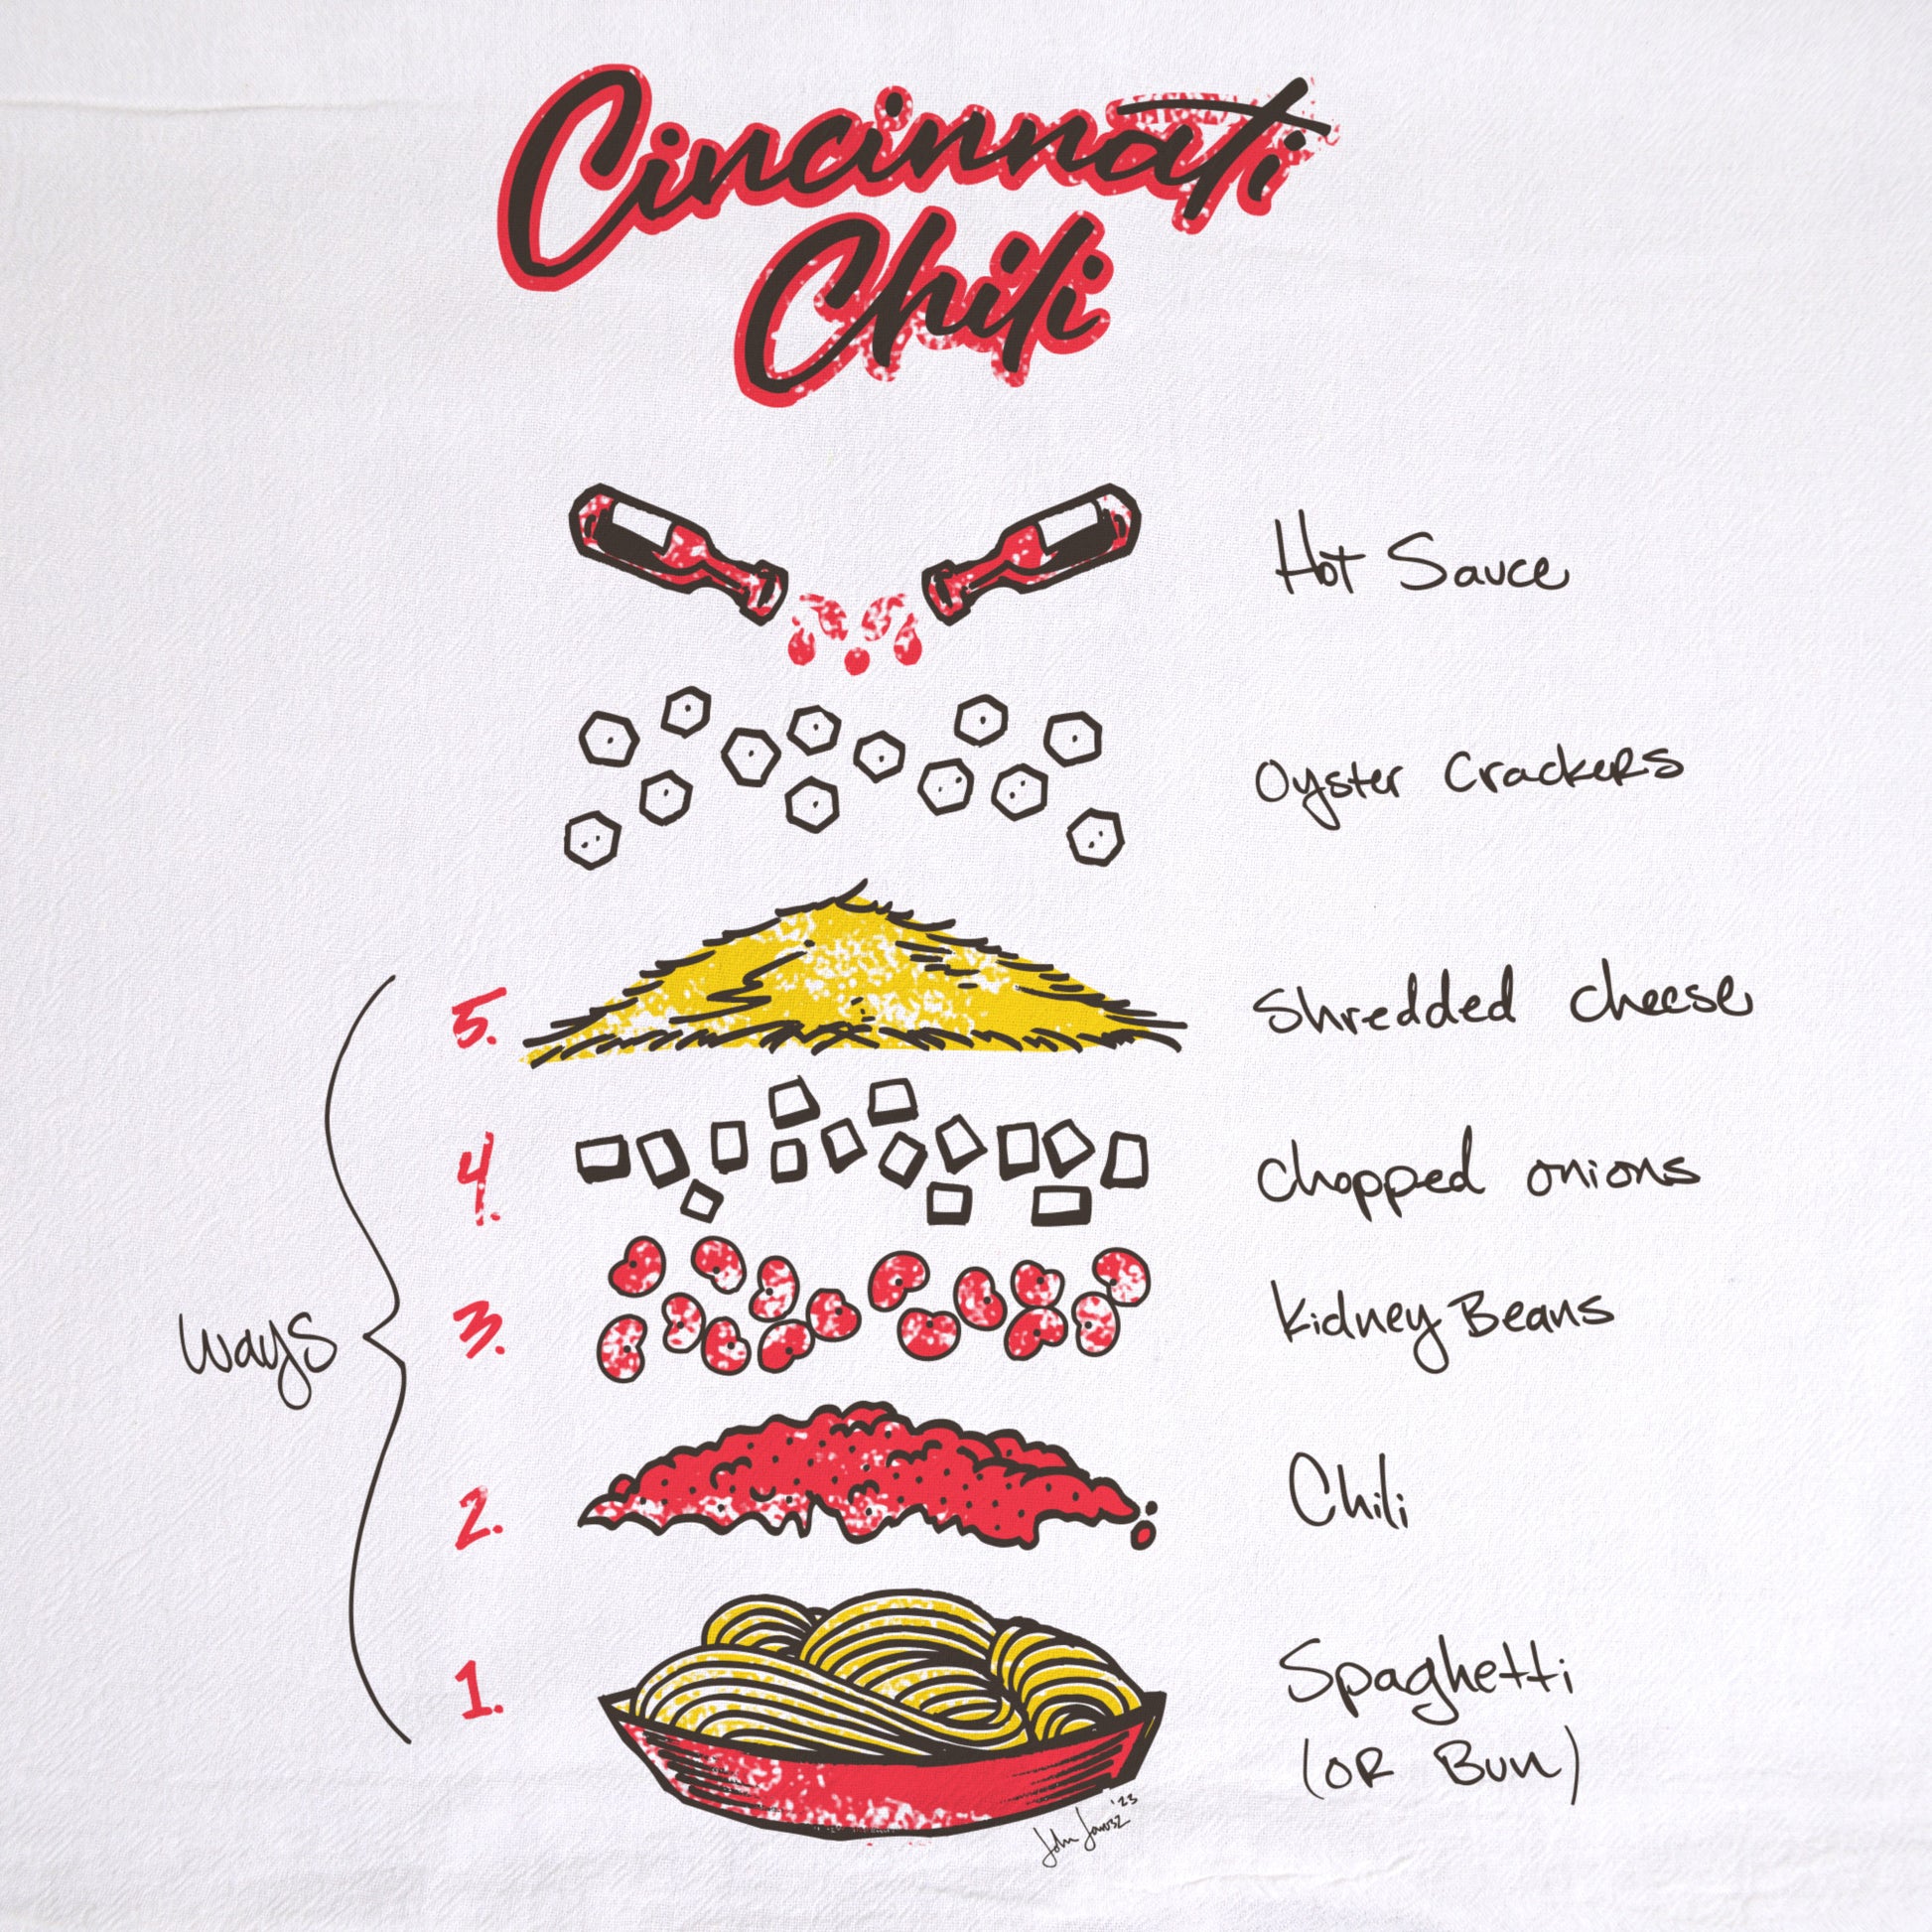 Cincinnati
Chili
Hot Sauce
Oyster Crackers
5. Shredded cheese
4. chopped onions
ways
3. Kidney Beans
2. Chili
1. Spaghetti
(OR Bun)
John Jarosz '23